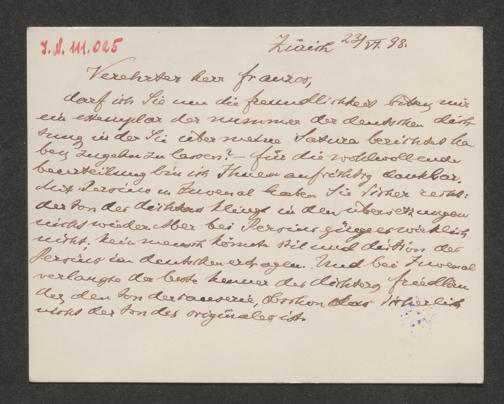 J. N. 111.025
Zürich 23/VI. 98.
Verehrter herr franzos,
darf ich Sie um die freundlichkeit bitten mir
ein exemplar der nummer der deutschen dich
tung in der Sie über meine Satura berichtet ha
ben zugehn zu lassen? – für die wohlwollende
beurteilung bin ich Ihnen aufrichtig dankbar.
Mit Persius u Juvenal haben Sie sicher recht:
der ton des dichters klingt in den übersetzungen
nicht wieder. Aber bei Persius ginge es wirklich
nicht. kein mensch könnte stil und diction des
Persius im deutschen ertragen. Und bei Juvenal
verlangte der beste kenner des dichters, friedlän
der den ton der causerie, obschon das sicherlich
nicht der ton des originales ist.